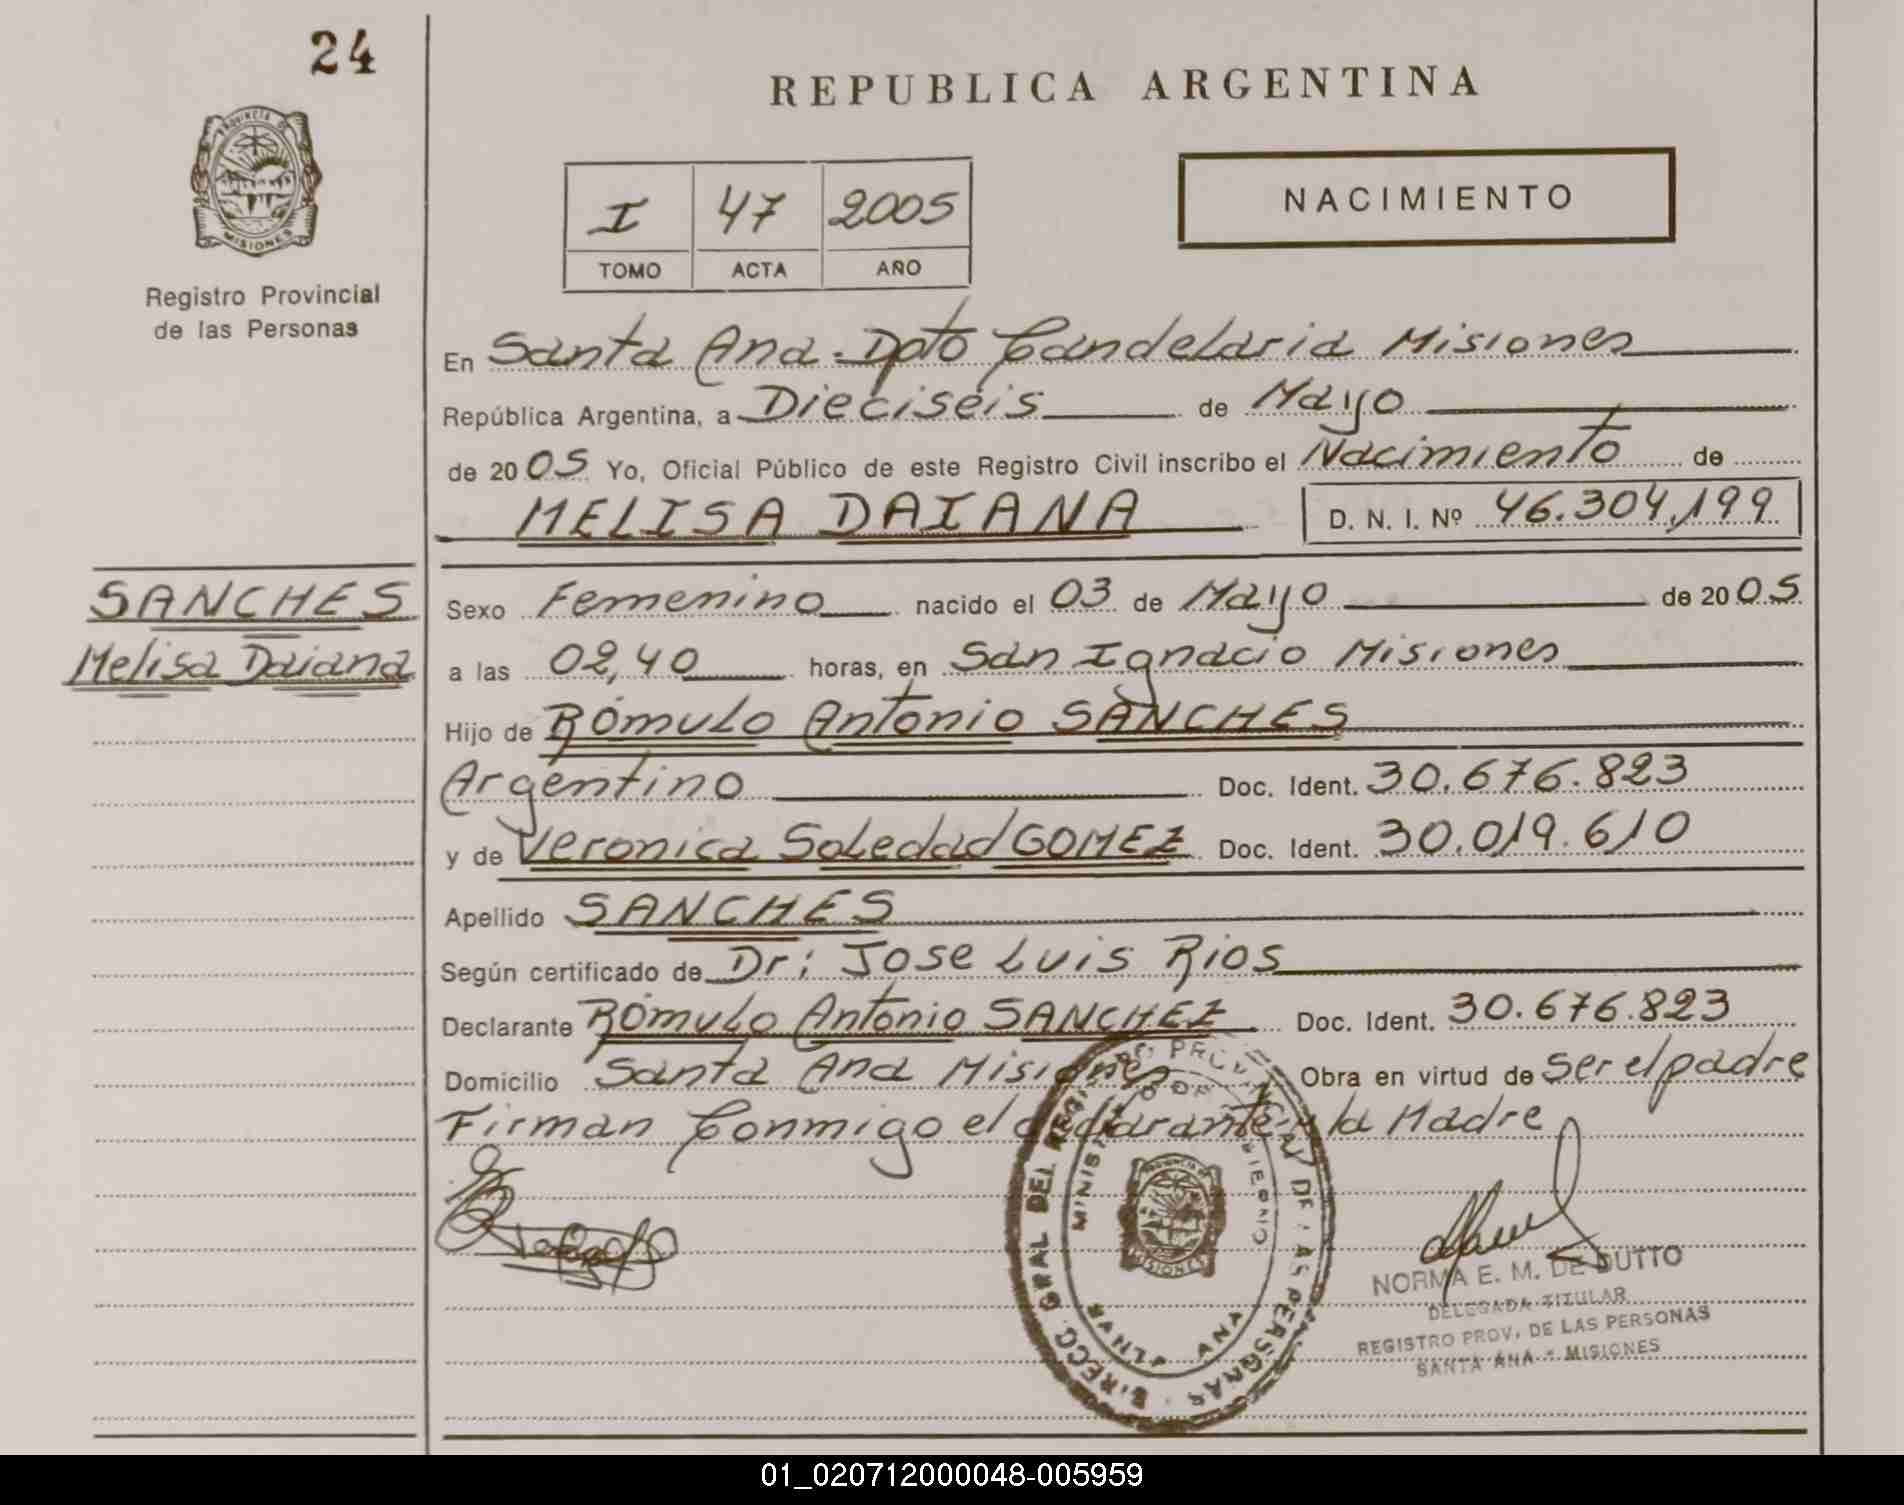 24
REPUBLICA ARGENTINA
PROVINCIA DE
MISIONES
Registro Provincial
de las Personas
I 47 2005
TOMO ACTA AÑO
NACIMIENTO
En Santa Ana - Dpto Candelaria Misiones
República Argentina, a Dieciséis de Mayo
de 2005 Yo, Oficial Público de este Registro Civil inscribo el Nacimiento de
MELISA DAIANA D. N. I. Nº 46.304.199
SANCHES
Melisa Daiana
Sexo Femenino nacido el 03 de Mayo de 2005
a las 02,40 horas, en San Ignacio Misiones
Hijo de Rómulo Antonio SANCHES
Argentino Doc. Ident. 30.676.823
y de Veronica Soledad GOMEZ Doc. Ident. 30.019.610
Apellido SANCHES
Según certificado de Dr: Jose Luis Rios
Declarante Rómulo Antonio SANCHEZ Doc. Ident. 30.676.823
Domicilio Santa Ana Misiones Obra en virtud de ser el padre
Firman Conmigo el declarante y la Madre
DIRECC. GRAL DEL REGISTRO PROVINCIAL DE LAS PERSONAS
MINISTERIO DE GOBIERNO
PROVINCIA DE
MISIONES
SANTA ANA
NORMA E. M. DE DUTTO
DELEGADA TITULAR
REGISTRO PROV. DE LAS PERSONAS
SANTA ANA - MISIONES
01_020712000048-005959